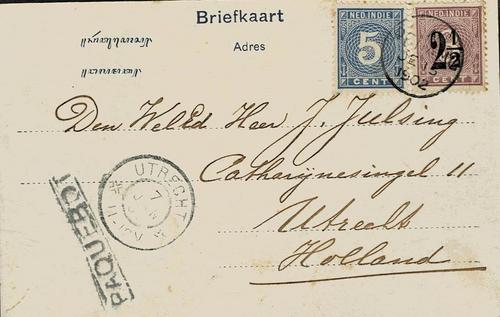 Briefkaart
Adres
NED.INDIE
5
CENT
NED.INDIE
2 1/2
CENT
1902
Den WelEd Heer J. Juelsing
Catharijnesingel 11
Utrecht
Holland
UTRECHT
7
PAQUEBOT